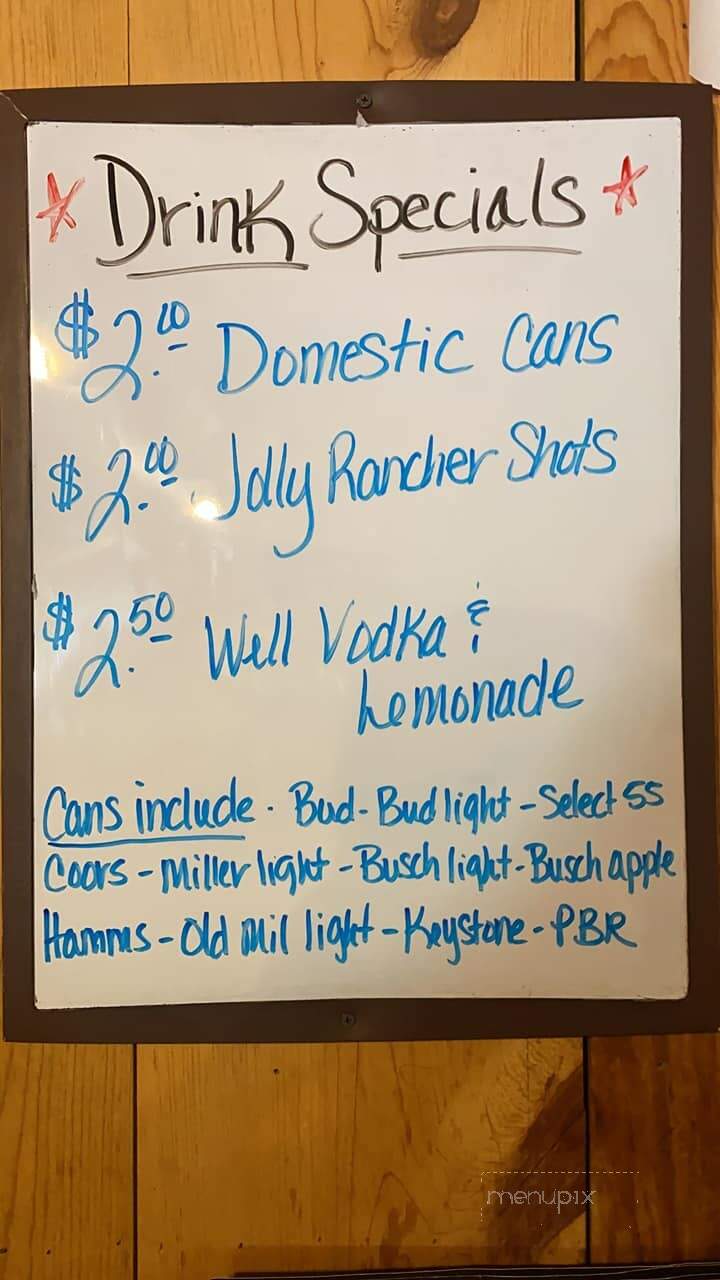 Drink Specials
$2.00 Domestic Cans
$2.00 Jolly Rancher Shots
$2.50 Well Vodka &
Lemonade
Cans include · Bud - Bud light - Select 55
Coors - Miller light - Busch light - Busch apple
Hamms - Old Mil light - Keystone - PBR
menupix